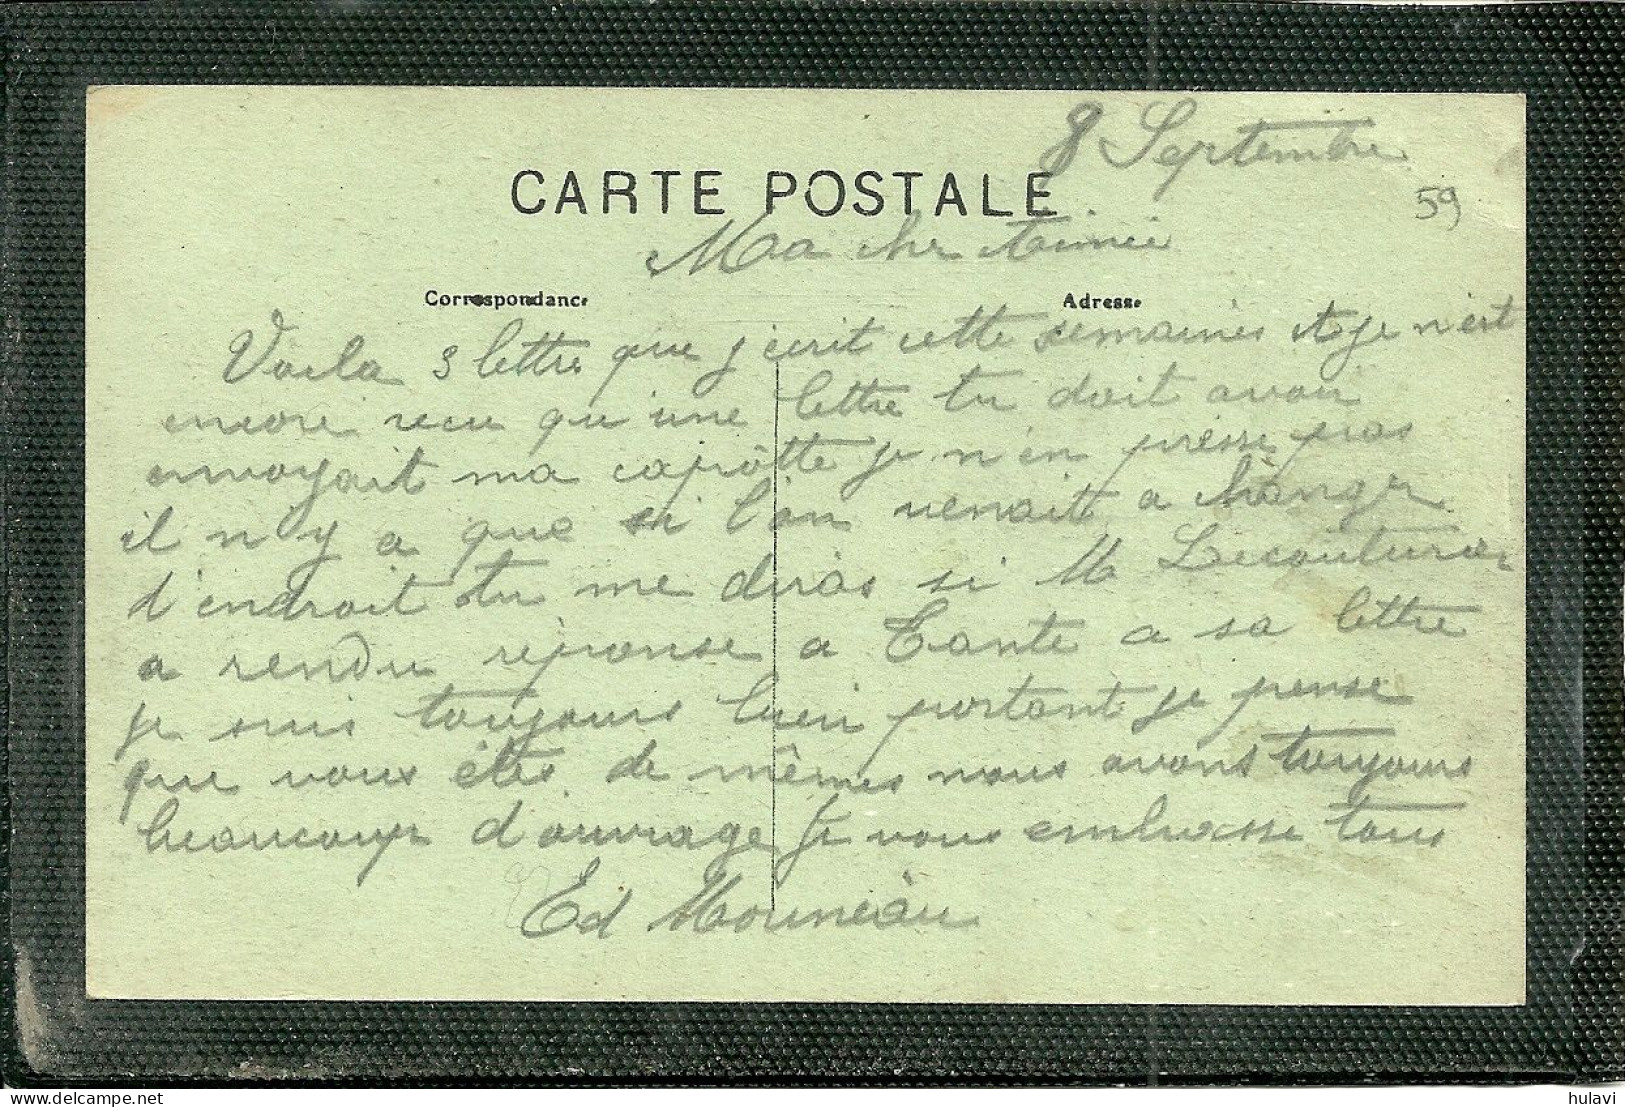 8 Septembre
CARTE POSTALE
59
Ma cher Aimée
Correspondance
Adresse
Voila 3 lettre que j'ecrit cette semaines et je n'est
encore recu qu'une lettre tu doit avoir
envoyait ma capôtte je n'en presse pas
il n'y a que si l'on venait a changer
d'endroit tu me diras si M Lecouturier
a rendu réponse a Tante a sa lettre
je suis toujours bien portant je pense
que vous êtes de mêmes nous avons toujours
beaucoup d'ouvrage Je vous embrasse tous
Ed
hulavi